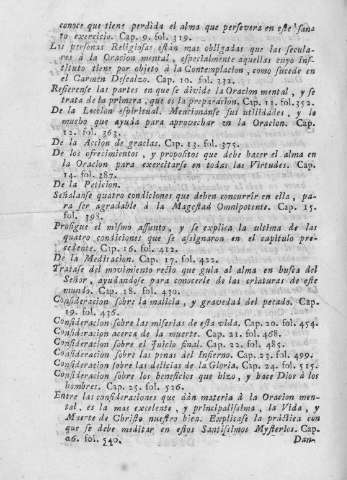 conoce que tiene perdida el alma que persevera en este santo
to exercicio. Cap. 9. fol. 319.
Las personas Religiosas están mas obligadas que las secula-
res à la Oracion mental, especialmente aquellas cuyo Ins-
tituto tiene por objeto à la Contemplacion, como sucede en
el Carmen Descalzo. Cap. 10. fol. 332.
Refierense las partes en que se divide la Oracion mental, y se
trata de la primera, que es la preparacion. Cap. 11. fol. 352.
De la Leccion espiritual. Mencionanse sus utilidades, y lo
mucho que ayuda para aprovechar en la Oracion. Cap.
12. fol. 363.
De la Accion de gracias. Cap. 13. fol. 375.
De los ofrecimientos, y propositos que debe hacer el alma en
la Oracion para exercitarse en todas las Virtudes. Cap.
14. fol. 387.
De la Peticion.
Señalanse quatro condiciones que deben concurrir en ella, pa-
ra ser agradable à la Magestad Omnipotente. Cap. 15.
fol. 398.
Prosigue el mismo assunto, y se explica la ultima de las
quatro condiciones que se asignaron en el capitulo pre-
cedente. Cap. 16. fol. 412.
De la Meditacion. Cap. 17. fol. 422.
Tratase del movimiento recto que guia al alma en busca del
Señor, ayudandose para conocerle de las criaturas de este
mundo. Cap. 18. fol. 430.
Consideracion sobre la malicia, y gravedad del pecado. Cap.
19. fol. 436.
Consideracion sobre las miserias de esta vida. Cap. 20. fol. 454.
Consideracion acerca de la muerte. Cap. 21. fol. 468.
Consideracion sobre el Juicio final. Cap. 22. fol. 485.
Consideracion sobre las penas del Infierno. Cap. 23. fol. 499.
Consideracion sobre las delicias de la Gloria. Cap. 24. fol. 515.
Consideracion sobre los beneficios que hizo, y hace Dios à los
hombres. Cap. 25. fol. 526.
Entre las consideraciones que dàn materia à la Oracion men-
tal, es la mas excelente, y principalisima, la Vida, y
Muerte de Christo nuestro bien. Explicase la práctica con
que se debe meditar en estos Santisimos Mysterios. Cap.
26. fol. 540.
Dan-